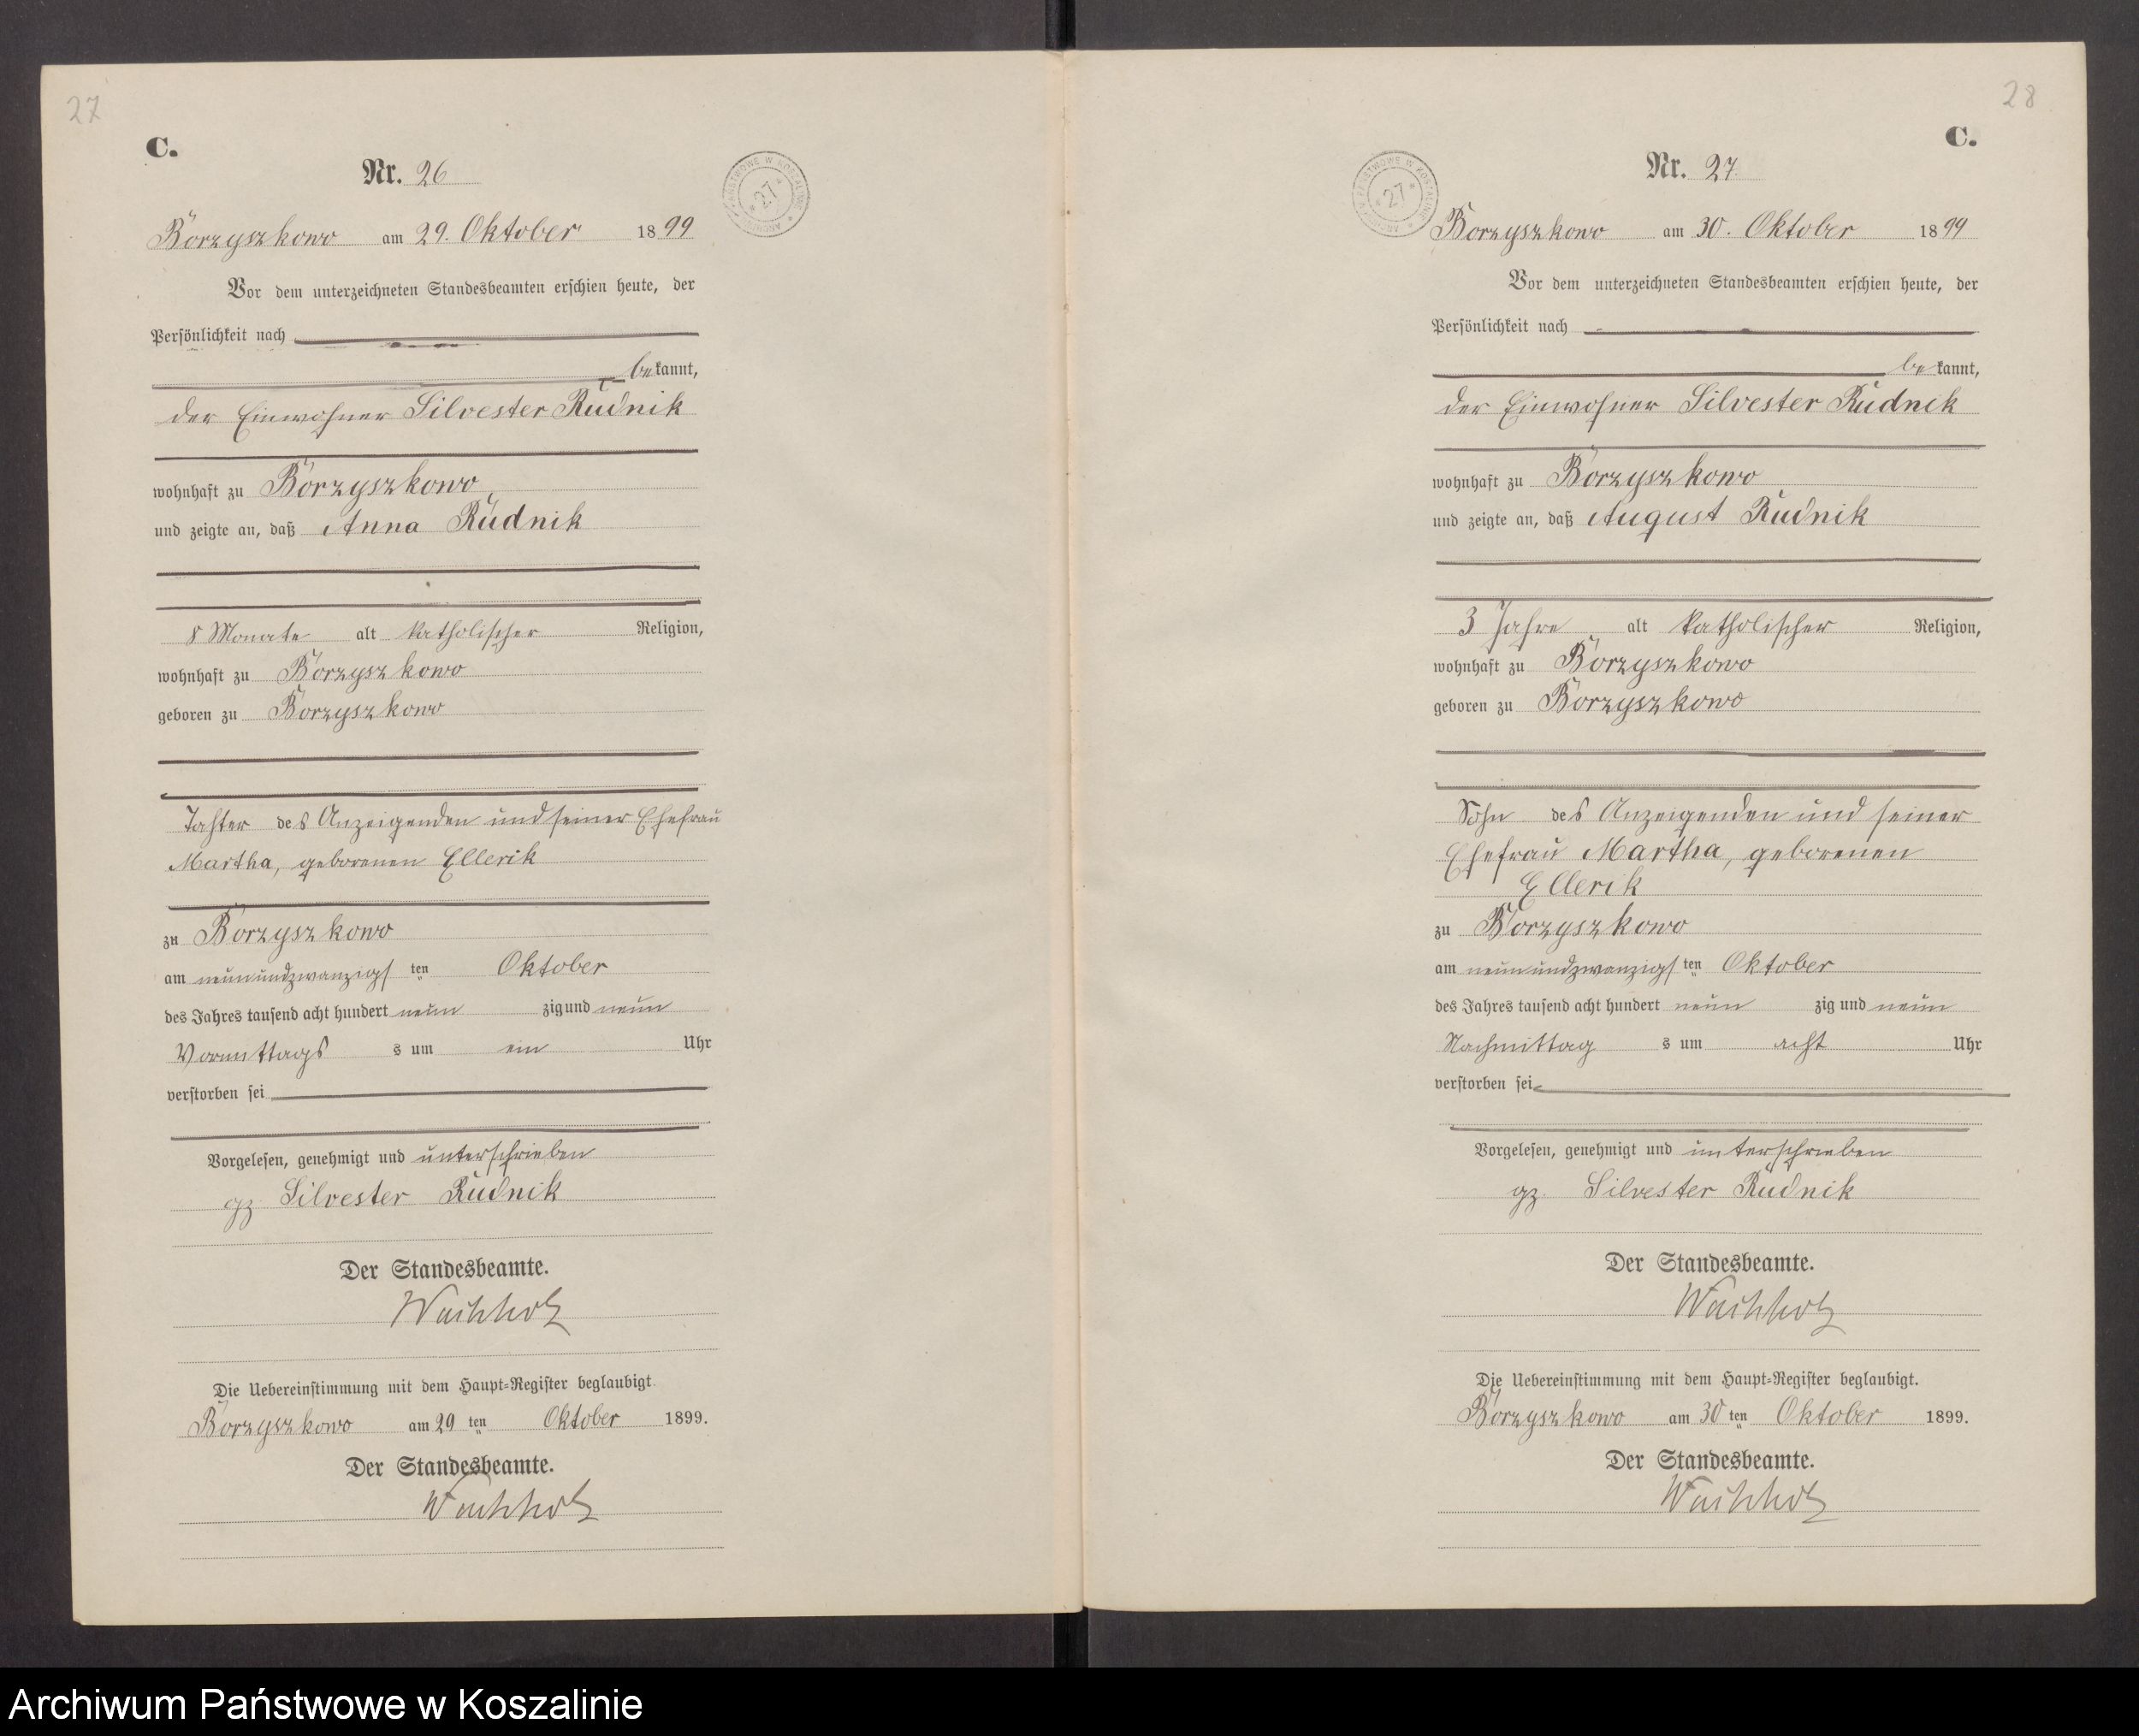 27
C.
Nr. 26
ARCHIWUM PAŃSTWOWE W KOSZALINIE * 27 *
Borzyszkowo am 29. Oktober 1899
Vor dem unterzeichneten Standesbeamten erschien heute, der
Persönlichkeit nach
bekannt,
der Einwohner Silvester Rudnik
wohnhaft zu Borzyszkowo
und zeigte an, daß Anna Rudnik
8 Monate alt katholischer Religion,
wohnhaft zu Borzyszkowo
geboren zu Borzyszkowo
Tohter des Anzeigenden und seiner Ehefrau
Martha, geborenen Ellerik
zu Borzyszkowo
am neunundzwanzigsten Oktober
des Jahres tausend acht hundert neunzig und neun
Vormittags s um ein Uhr
verstorben sei
Vorgelesen, genehmigt und unterschrieben
gz Silvester Rudnik
Der Standesbeamte.
Wachholz
Die Uebereinstimmung mit dem Haupt-Register beglaubigt.
Borzyszkowo am 29 ten Oktober 1899.
Der Standesbeamte.
Wachholz
28
C.
Nr. 27.
ARCHIWUM PAŃSTWOWE W KOSZALINIE * 27 *
Borzyszkowo am 30. Oktober 1899
Vor dem unterzeichneten Standesbeamten erschien heute, der
Persönlichkeit nach
bekannt,
der Einwohner Silvester Rudnik
wohnhaft zu Borzyszkowo
und zeigte an, daß August Rudnik
3 Jahre alt katholischer Religion,
wohnhaft zu Borzyszkowo
geboren zu Borzyszkowo
Sohn des Anzeigenden und seiner
Ehefrau Martha, geborenen
Ellerik
zu Borzyszkowo
am neunundzwanzigsten Oktober
des Jahres tausend acht hundert neunzig und neun
Nachmittags um acht Uhr
verstorben sei
Vorgelesen, genehmigt und unterschrieben
gz. Silvester Rudnik
Der Standesbeamte.
Wachholz
Die Uebereinstimmung mit dem Haupt-Register beglaubigt.
Borzyszkowo am 30 ten Oktober 1899.
Der Standesbeamte.
Wachholz
Archiwum Państwowe w Koszalinie